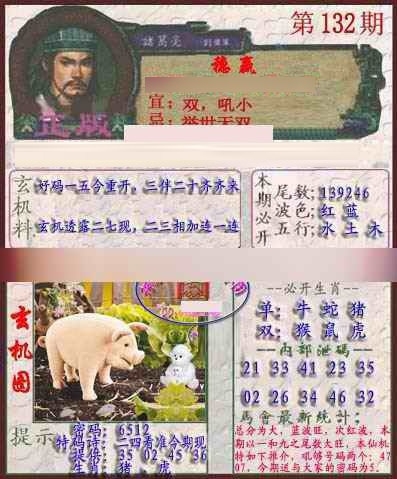 第132期
諸葛亮
稳赢
宜：双，吼小
正版
忌：举世无双
玄机料
好码一五合重开，三伴二十齐齐来
玄机透露二七现，二三相加连一连
本期必开
尾数：139246
波色：红 蓝
五行：水 土 木
玄机图
--必开生肖--
单：牛 蛇 猪
双：猴 鼠 虎
--内部泄码--
21 33 41 23 35
02 26 34 46 32
马會最新统计：
总分为大，蓝波旺，次红波，本
期以一和九之尾数大旺，本仙机
特如下推介，吼够号码两个：47
07，今期送与大家的密码为5.
提示
密码：6512
特码诗：二四看准今期现
35 02 45 36
生肖：猪，虎